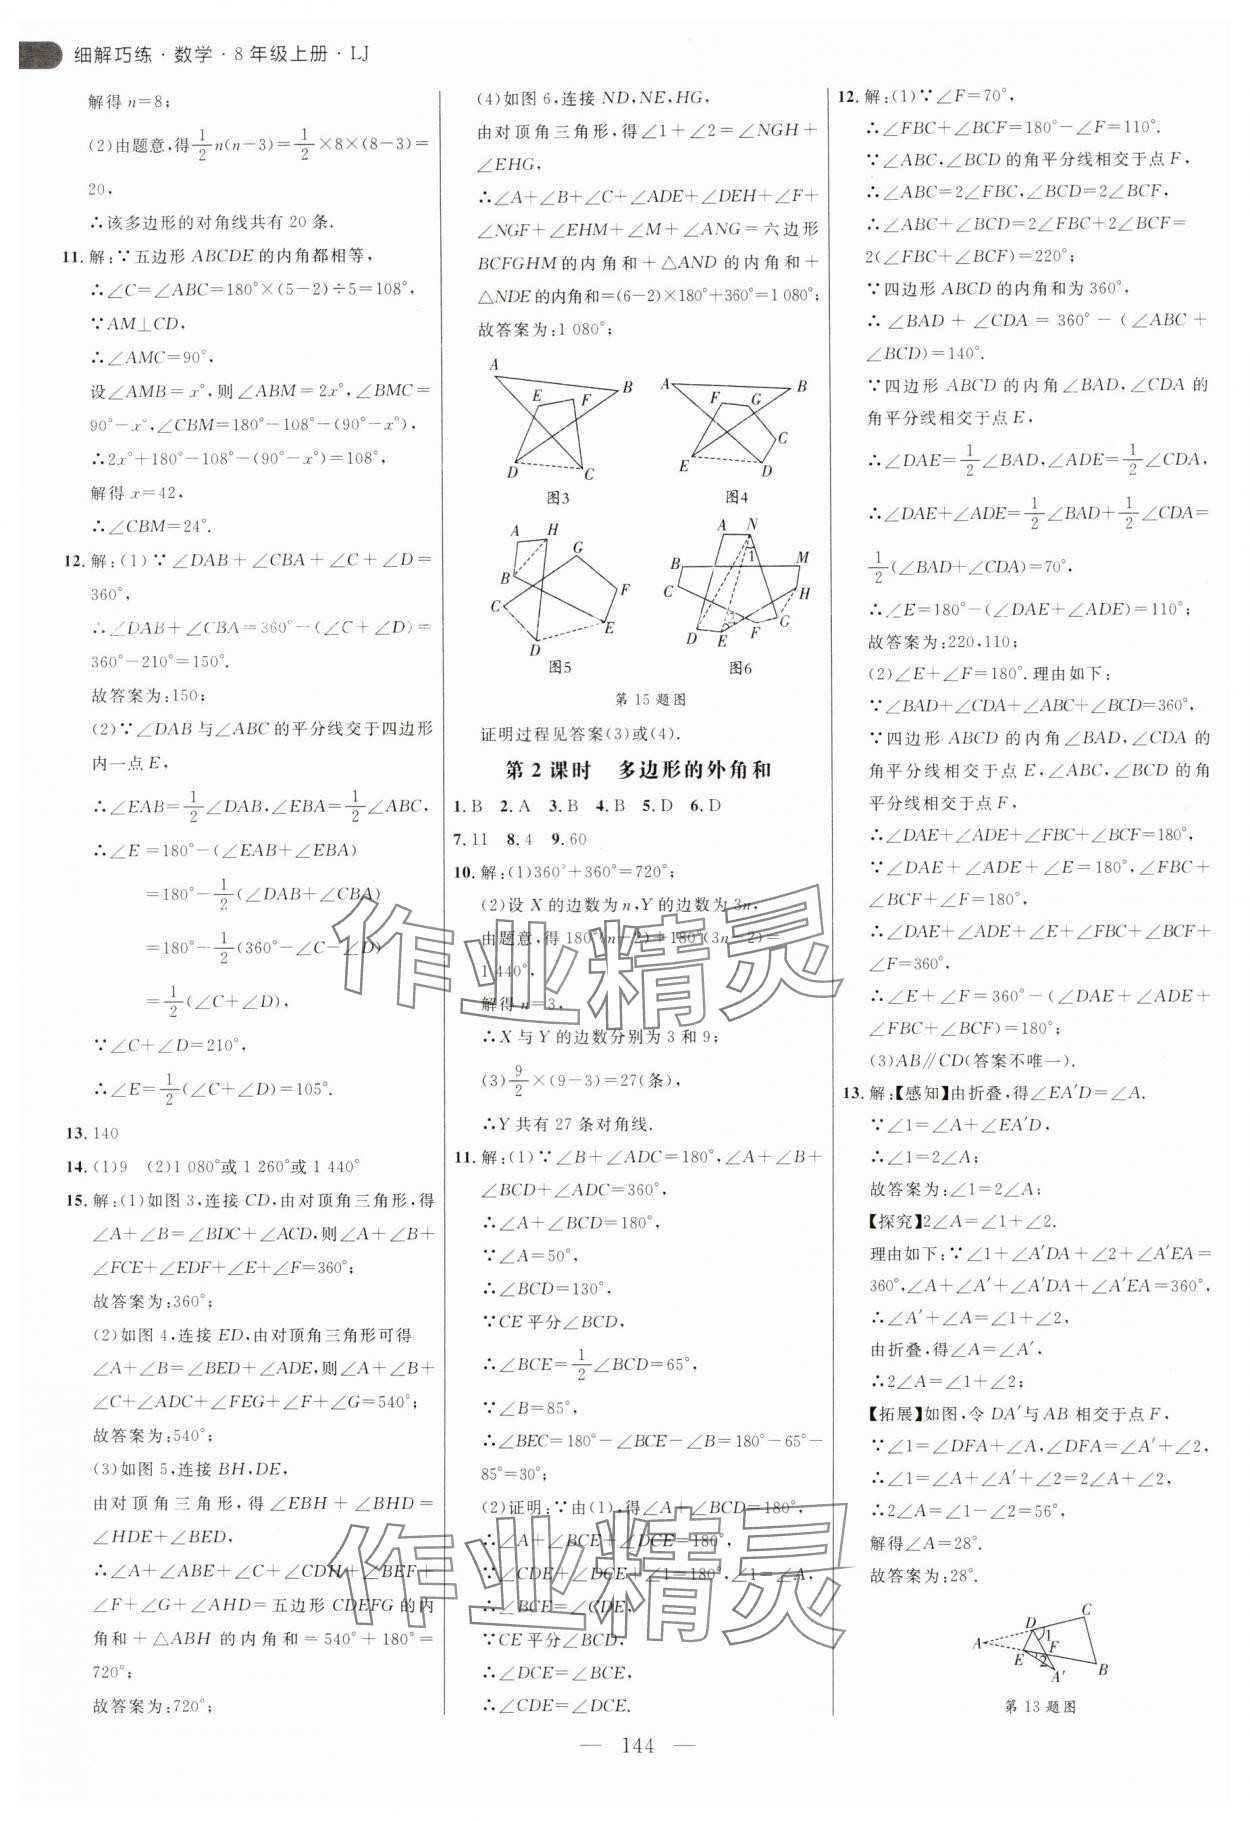 细解巧练·数学·8年级上册·LJ
解得n=8;
(2)由题意,得1/2n(n−3)=1/2×8×(8−3)=
20,
∴该多边形的对角线共有20条.
11.解:∵五边形ABCDE的内角都相等,
∴∠C=∠ABC=180°×(5−2)÷5=108°,
∵AM⊥CD,
∴∠AMC=90°,
设∠AMB=x°,则∠ABM=2x°,∠BMC=
90°−x°,∠CBM=180°−108°−(90°−x°),
∴2x°+180°−108°−(90°−x°)=108°,
解得x=42,
∴∠CBM=24°.
12.解:(1)∵∠DAB+∠CBA+∠C+∠D=
360°,
∴∠DAB+∠CBA=360°−(∠C+∠D)=
360°−210°=150°.
故答案为:150;
(2)∵∠DAB与∠ABC的平分线交于四边形
内一点E,
∴∠EAB=1/2∠DAB,∠EBA=1/2∠ABC,
∴∠E=180°−(∠EAB+∠EBA)
=180°−1/2(∠DAB+∠CBA)
=180°−1/2(360°−∠C−∠D)
=1/2(∠C+∠D),
∵∠C+∠D=210°,
∴∠E=1/2(∠C+∠D)=105°.
13.140
14.(1)9 (2)1 080°或1 260°或1 440°
15.解:(1)如图3,连接CD,由对顶角三角形,得
∠A+∠B=∠BDC+∠ACD,则∠A+∠B+
∠FCE+∠EDF+∠E+∠F=360°;
故答案为:360°;
(2)如图4,连接ED,由对顶角三角形可得
∠A+∠B=∠BED+∠ADE,则∠A+∠B+
∠C+∠ADC+∠FEG+∠F+∠G=540°;
故答案为:540°;
(3)如图5,连接BH,DE,
由对顶角三角形,得∠EBH+∠BHD=
∠HDE+∠BED,
∴∠A+∠ABE+∠C+∠CDH+∠BEF+
∠F+∠G+∠AHD=五边形CDEFG的内
角和+△ABH的内角和=540°+180°=
720°;
故答案为:720°;
(4)如图6,连接ND,NE,HG,
由对顶角三角形,得∠1+∠2=∠NGH+
∠EHG,
∴∠A+∠B+∠C+∠ADE+∠DEH+∠F+
∠NGF+∠EHM+∠M+∠ANG=六边形
BCFGHM的内角和+△AND的内角和+
△NDE的内角和=(6−2)×180°+360°=1 080°;
故答案为:1 080°;
A B E F D C
图3
A B F G C E D
图4
A H G B F C E D
图5
A N 1 B M C H 2 D E F G
图6
第15题图
证明过程见答案(3)或(4).
第2课时 多边形的外角和
1.B 2.A 3.B 4.B 5.D 6.D
7.11 8.4 9.60
10.解:(1)360°+360°=720°;
(2)设X的边数为n,Y的边数为3n,
由题意,得180°(n−2)+180°(3n−2)=
1 440°,
解得n=3,
∴X与Y的边数分别为3和9;
(3)9/2×(9−3)=27(条),
∴Y共有27条对角线.
11.解:(1)∵∠B+∠ADC=180°,∠A+∠B+
∠BCD+∠ADC=360°,
∴∠A+∠BCD=180°,
∵∠A=50°,
∴∠BCD=130°,
∵CE平分∠BCD,
∴∠BCE=1/2∠BCD=65°,
∵∠B=85°,
∴∠BEC=180°−∠BCE−∠B=180°−65°−
85°=30°;
(2)证明:∵由(1),得∠A+∠BCD=180°,
∴∠A+∠BCE+∠DCE=180°,
∵∠CDE+∠DCE+∠1=180°,∠1=∠A,
∴∠BCE=∠CDE,
∵CE平分∠BCD,
∴∠DCE=∠BCE,
∴∠CDE=∠DCE.
12.解:(1)∵∠F=70°,
∴∠FBC+∠BCF=180°−∠F=110°.
∵∠ABC,∠BCD的角平分线相交于点F,
∴∠ABC=2∠FBC,∠BCD=2∠BCF,
∴∠ABC+∠BCD=2∠FBC+2∠BCF=
2(∠FBC+∠BCF)=220°;
∵四边形ABCD的内角和为360°,
∴∠BAD+∠CDA=360°−(∠ABC+
∠BCD)=140°.
∵四边形ABCD的内角∠BAD,∠CDA的
角平分线相交于点E,
∴∠DAE=1/2∠BAD,∠ADE=1/2∠CDA,
∴∠DAE+∠ADE=1/2∠BAD+1/2∠CDA=
1/2(∠BAD+∠CDA)=70°,
∴∠E=180°−(∠DAE+∠ADE)=110°;
故答案为:220,110;
(2)∠E+∠F=180°.理由如下:
∵∠BAD+∠CDA+∠ABC+∠BCD=360°,
∵四边形ABCD的内角∠BAD,∠CDA的
角平分线相交于点E,∠ABC,∠BCD的角
平分线相交于点F,
∴∠DAE+∠ADE+∠FBC+∠BCF=180°,
∵∠DAE+∠ADE+∠E=180°,∠FBC+
∠BCF+∠F=180°,
∴∠DAE+∠ADE+∠E+∠FBC+∠BCF+
∠F=360°,
∴∠E+∠F=360°−(∠DAE+∠ADE+
∠FBC+∠BCF)=180°;
(3)AB∥CD(答案不唯一).
13.解:【感知】由折叠,得∠EA′D=∠A.
∵∠1=∠A+∠EA′D,
∴∠1=2∠A;
故答案为:∠1=2∠A;
【探究】2∠A=∠1+∠2.
理由如下:∵∠1+∠A′DA+∠2+∠A′EA=
360°,∠A+∠A′+∠A′DA+∠A′EA=360°,
∴∠A′+∠A=∠1+∠2,
由折叠,得∠A=∠A′,
∴2∠A=∠1+∠2;
【拓展】如图,令DA′与AB相交于点F,
∵∠1=∠DFA+∠A,∠DFA=∠A′+∠2,
∴∠1=∠A+∠A′+∠2=2∠A+∠2,
∴2∠A=∠1−∠2=56°,
解得∠A=28°.
故答案为:28°.
A D C 1 F E 2 B A′
第13题图
作业精灵
作业精灵
— 144 —